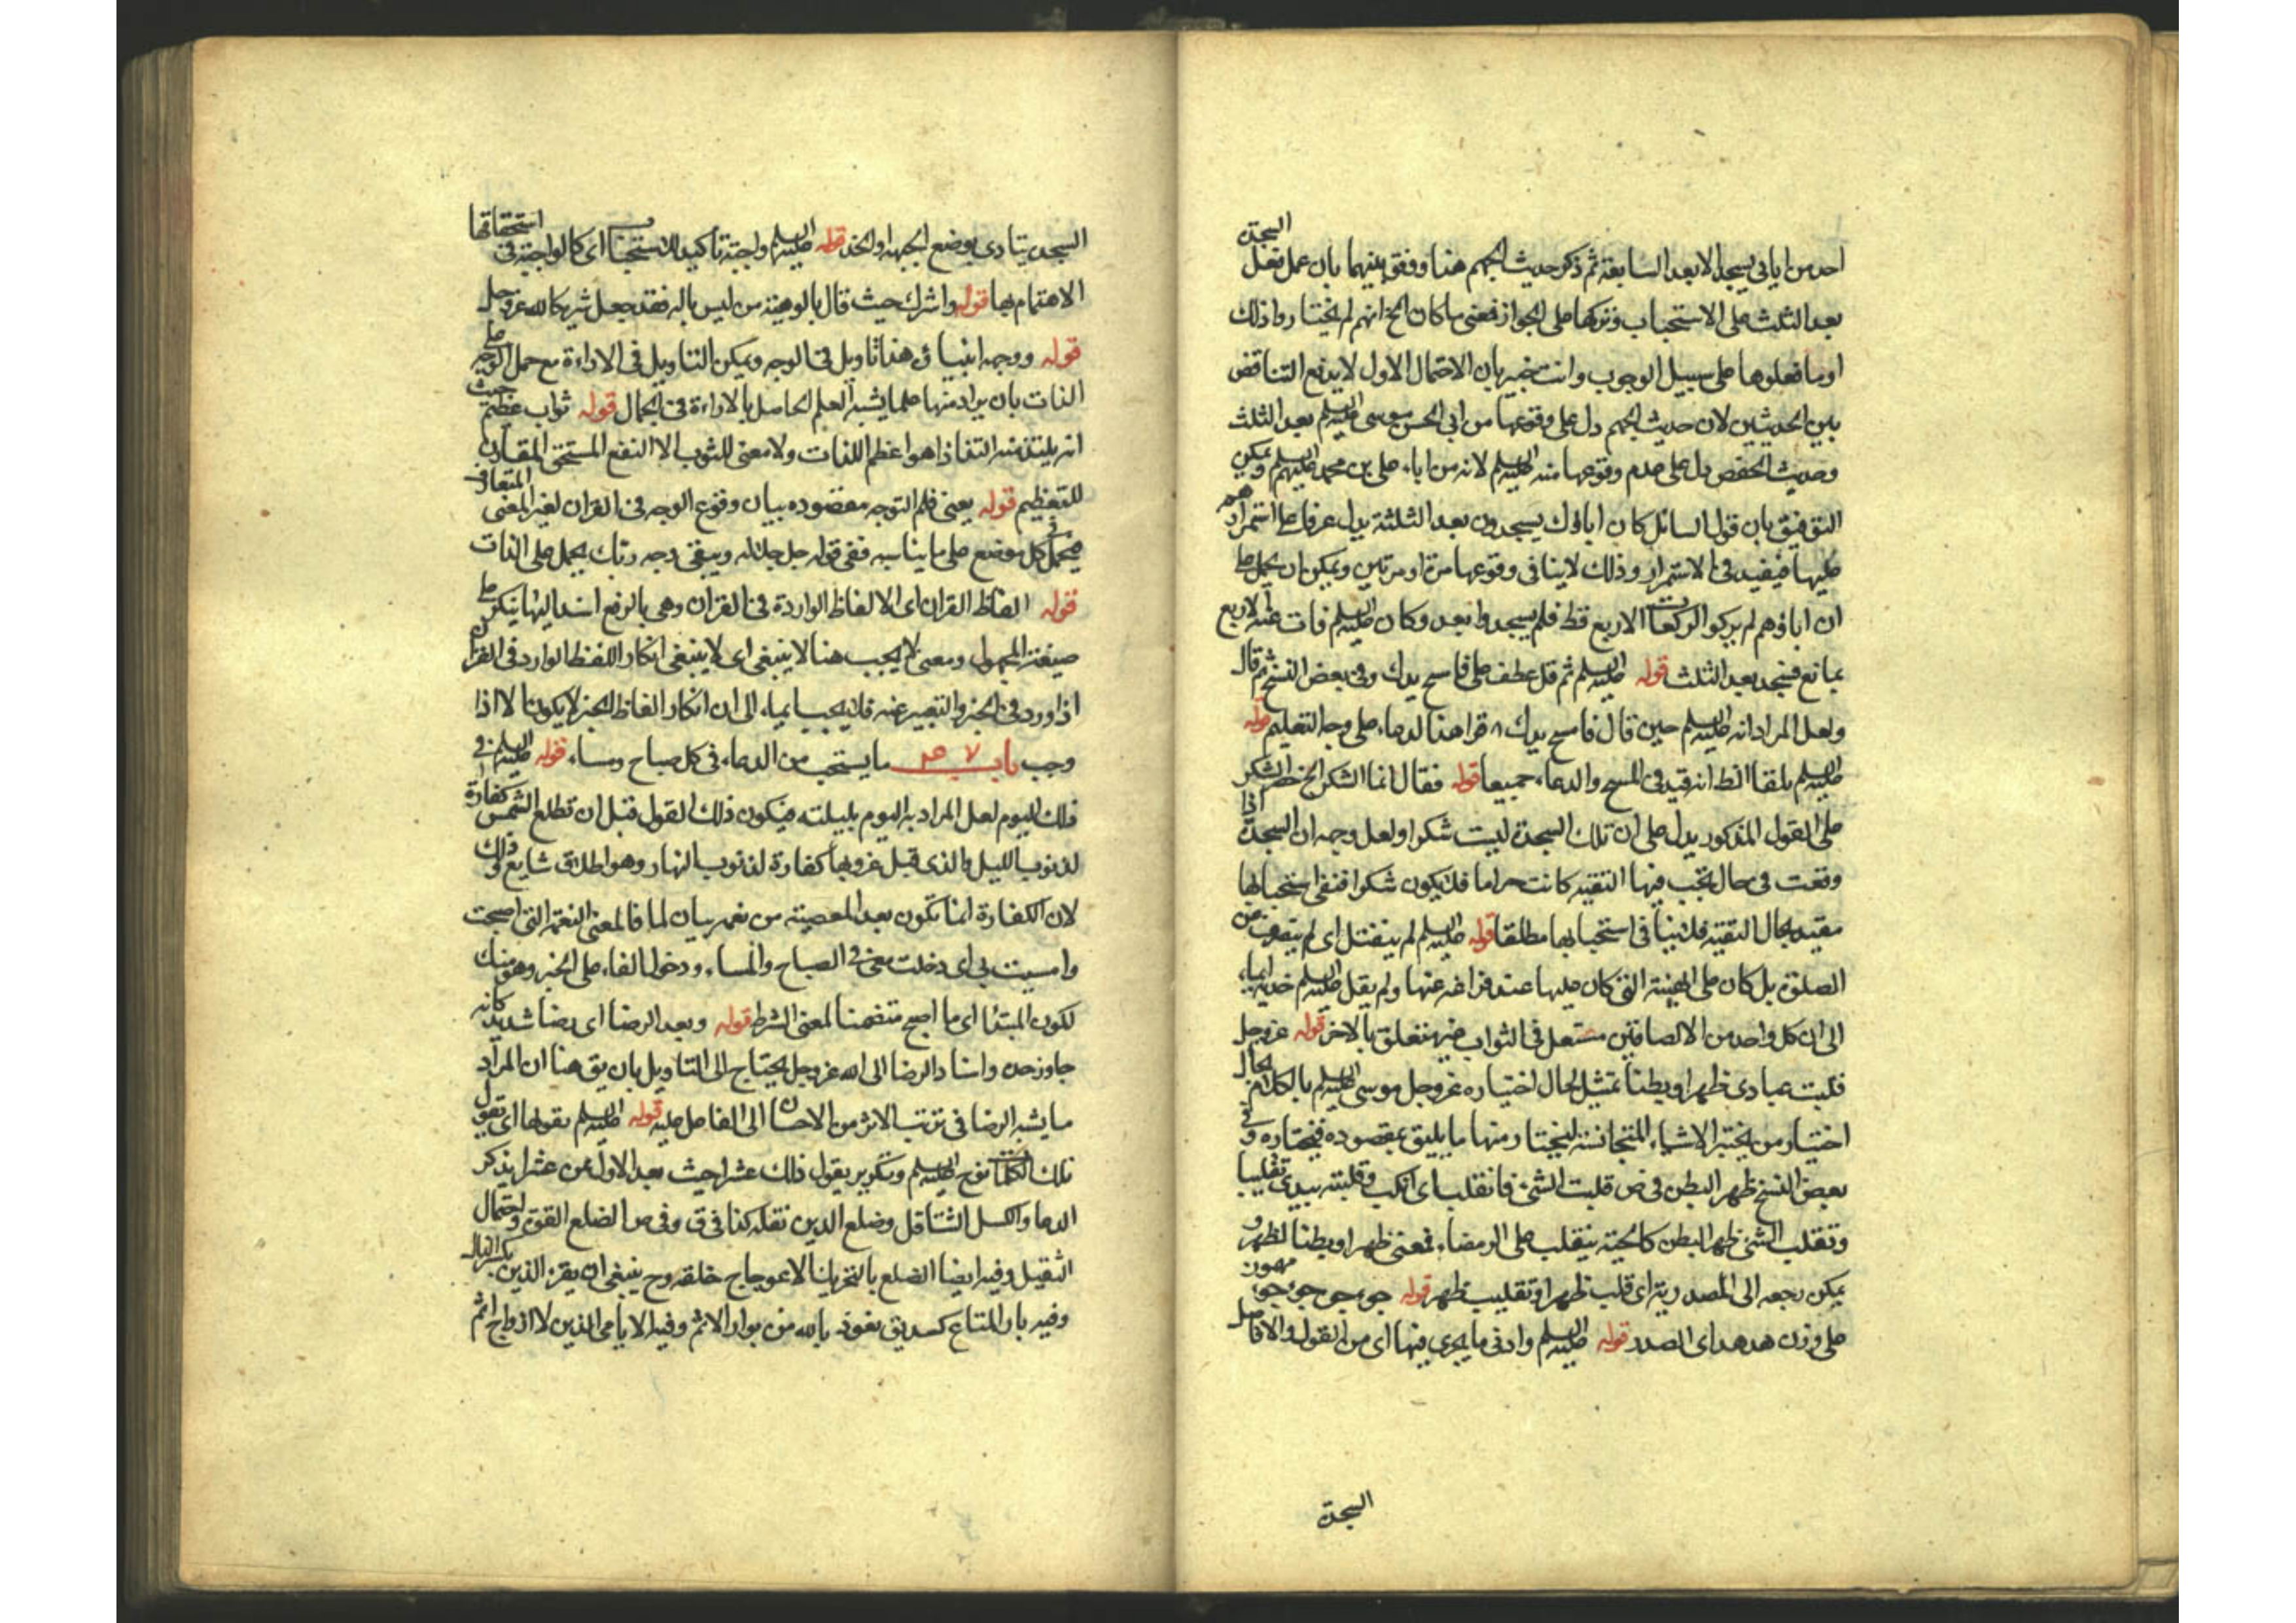 احد من اباى يسجد الا بعد السابعة ثم ذكر حديث الجهم هنا ووفق بينهما بان عمل بفعل السجدة
بعد الثلث على الاستحباب وتركها على الجواز فمعنى ما كان الخ انهم لم يختاروا ذلك
او ما فعلوها على سبيل الوجوب وانت خبير بان الاحتمال الاول لا يدفع التناقض
بين الحديثين لان حديث الجهم دل على وقوعها من ابى الحسن موسى عليه السلم بعد الثلث
وحديث الحفص يدل على عدم وقوعها منه عليه السلم لانه من اباء على بن محمد عليهم السلم ويمكن
التوفيق بان قول السائل كان اباؤك يسجدون بعد الثلثة يدل عرفا على استمرارهم
عليها فيفيد نفى الاستمرار وذلك لا ينافى وقوعها مرة او مرتين ويمكن ان يحمل على
ان اباؤهم لم يتركوا الركعات الاربع قط فلم يسجدوا بعد وكان عليه السلم فات عنه الاربع
بمانع فسجد بعد الثلث قوله عليه السلم ثم قل عطف على فامسح يدك وفى بعض النسخ ثم قال
ولعل المراد انه عليه السلم حين قال فامسح يدك قرا هذا لدعاء على وجه التعليم قوله
عليه السلم يلقا الظ انه قيد فى المسح والدعاء جميعا قوله فقال انما الشكر الخ حصر الشكر
على القول المذكور يدل على ان تلك السجدة ليست شكرا ولعل وجه ان السجدة اذا
وقعت فى حال يجب فيها التقية كانت حراما فلا يكون شكرا فنفى استحبابها
مقيد بحال التقية فلا ينافى استحبابها مطلقا قوله عليه السلم لم ينفتل اى لم ينصرف عن
الصلوة بل كان على الهيئة التى كان عليها عند فراغه عنها ولم يقل عليه السلم خديه ايماء
الى ان كل واحد من الالصاقين مستعمل فى الثواب غير متعلق بالاخر قوله عز وجل
قلبت عبادى ظهرا وبطنا تمثيل لحال اختياره عز وجل موسى عليه السلم بالكلام بحال
اختيار من يختبر الاشياء المتجانسة ليختار منها ما يليق بمقصوده فيختاره وفى
بعض النسخ ظهر البطن فى ص قلبت الشئ فانقلب اى انكب وقلبته بيدى تقليبا
وتقلب الشئ ظهر البطن كالحية يتقلب على الرمضاء فمعنى ظهرا وبطنا لظهر و
يمكن رجعه الى المصدرية اى قلب ظهر او تقليب ظهر قوله جوجوء جوجوء مهموز
على وزن هدهد اى الصدر قوله عليه السلم وادنى ما يجرى فيها اى من القول والافاصل
السجدة
السجدة يتادى بوضع الجبهة او الخد قوله عليه السلم واجبة تاكيد للاستحباب اى كالواجبة فى استحقاقها
الاهتمام بها قوله واشرك حيث قال بالوهية من ليس باله فقد جعل شريكا لله عز وجل
قوله ووجه انبيائى هذا تاويل فى الوجه ويمكن التاويل فى الاراءة مع حمل الوجه على
الذات بان يراد منها علما يشبه العلم الحاصل بالاراءة فى الجمال قوله ثواب عظيم حيث
انه يلتذ منه التذاذا هو اعظم اللذات ولا معنى للثوب الا النفع المستحق المقارن
للتعظيم قوله يعنى فلم التوجه مقصوده بيان وقوع الوجه فى القران لغير المعنى المتعارف
فيحمل كل موضع على ما يناسبه ففى قوله جل جلاله ويبقى وجه ربك يحمل على الذات
قوله الفاظ القران اى الالفاظ الواردة فى القران وهى بالرفع اسند اليها ينكر على
صيغة المجهول ومعنى لا يجب هنا لا ينبغى اى لا ينبغى انكار اللفظ الوارد فى القران
اذا ورد فى الخبر والتعبير عنه فلا يجب ايماء الى ان انكار الفاظ الخبر لا يكون الا اذا
وجب باب ما يستحب من الدعاء فى كل صباح ومساء قوله عليه السلم فى
ذلك اليوم لعل المراد به اليوم بليلته فيكون ذلك القول قبل ان تطلع الشمس كفارة
لذنوب الليل والذى قبل غروبها كفارة لذنوب النهار وهو اطلاق شايع وذلك
لان الكفارة انما تكون بعد المعصية من نعمة بيان لما فالمعنى النعمة التى اصبحت
وامسيت بى اى دخلت معى فى الصباح والمساء ودخول الفاء على الخبر وهو منك
لكون المبتدا اى ما اصبح متضمنا لمعنى الشرط قوله وبعد الرضا اى رضا شديد كانه
جاوز حده واسناد الرضا الى الله عز وجل يحتاج الى التاويل بان يق هنا ان المراد
ما يشبه الرضا فى ترتب الاثر من الاحسان الى الفاعل عليه قوله عليه السلم يقولها اى يقول
تلك الكلمات نوح عليه السلم وتكرير يقول ذلك عشرا حيث بعد الاول عن عشرا يذكر
الدعاء والكسل التثاقل وضلع الدين ثقله كذا فى ق وفى ص الضلع القوة واحتمال
الثقيل وفيه ايضا الضلع بالتحريك الاعوجاج خلقة وح ينبغى ان يقرء الدين بكسر الدال
وفيه بار المتاع كسد يق نعوذ بالله من بوار الايم وفيه الايامى الذين لا ازواج لهم